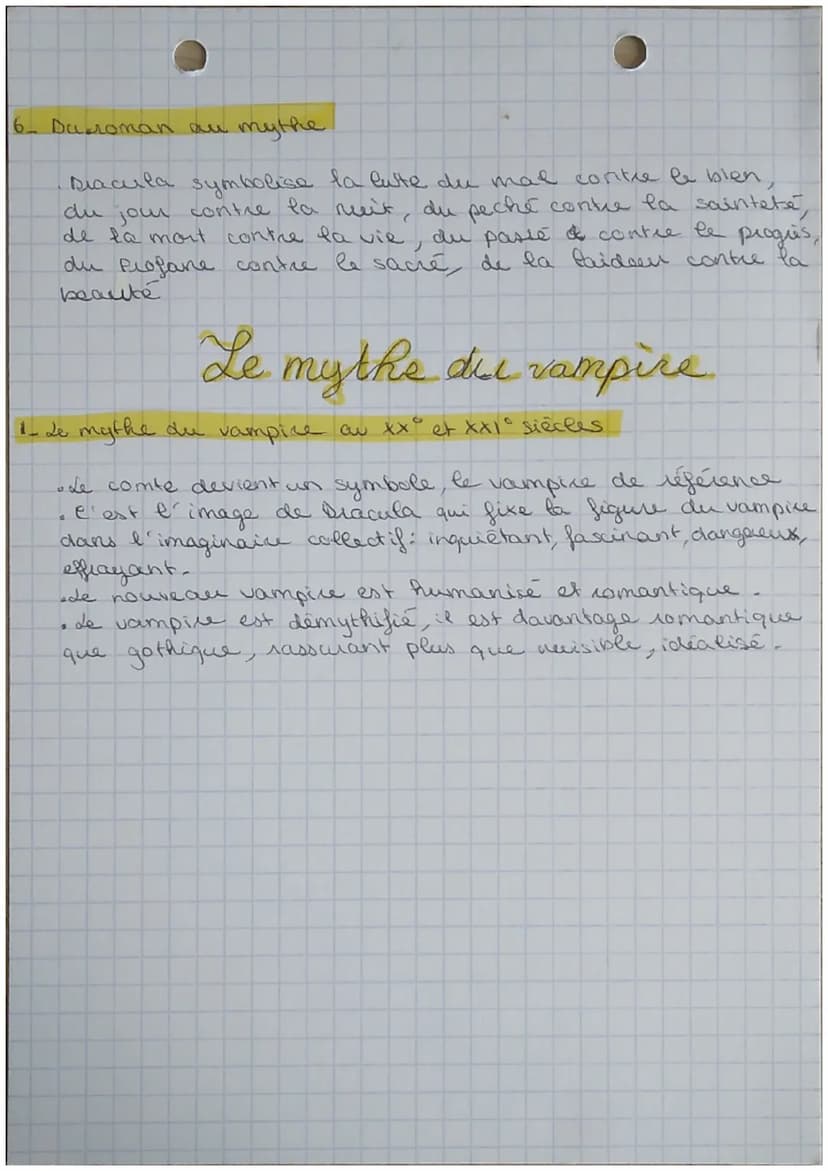 6_ Du roman au mythe
. Dracula symbolise la lutte du mal contre le bien,
du jour contre la nuit, du peché contre la sainteté,
de la mort contre la vie, du passé contre le progrès,
du Profane contre le sacré, de la laideur contre la
beauté
Le mythe du vampire
1_ Le mythe du vampire au XX° et XXI° siècles
. Le comte devient un symbole, le vampire de référence
. C'est l'image de Dracula qui fixe la figure du vampire
dans l'imaginaire collectif : inquiétant, fascinant, dangereux,
effrayant.
. Le nouveau vampire est humanisé et romantique.
. Le vampire est démythifié, il est davantage romantique
que gothique, rassurant plus que nuisible, idéalisé.